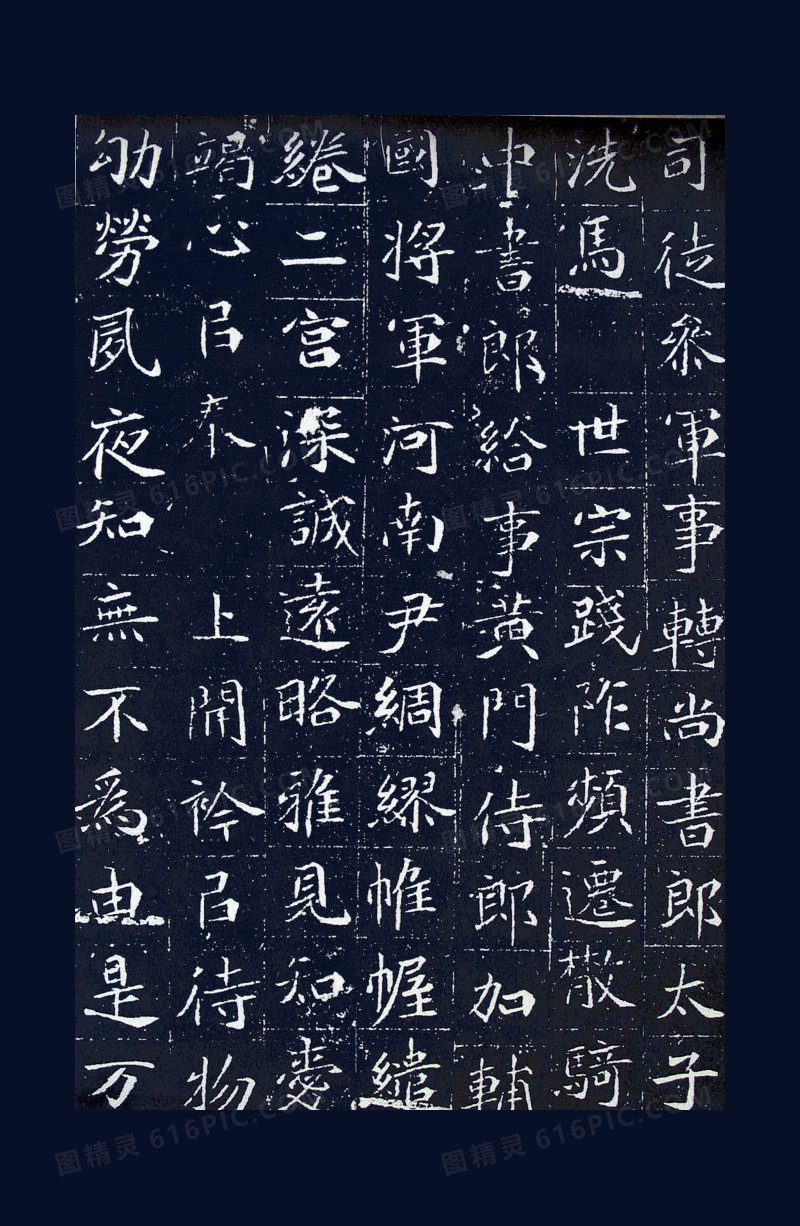 司徒參軍事轉尚書郎太子
洗馬 世宗踐阼頻遷散騎
中書郎給事黃門侍郎加輔
國將軍河南尹綢繆帷幄繾
綣二宮深誠遠略雅見知愛
竭心㠯奉 上開衿㠯待物
劬勞夙夜知無不為由是万
图精灵 616PIC.COM